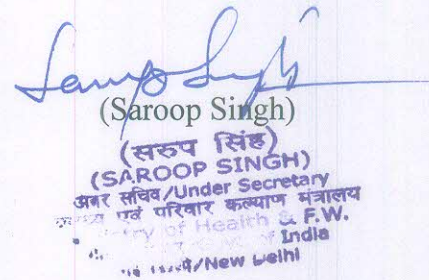 (Saroop Singh)
(सरुप सिंह)
(SAROOP SINGH)
अवर सचिव/Under Secretary
एवं परिवार कल्याण मंत्रालय
of Health & F.W.
India
/New Delhi